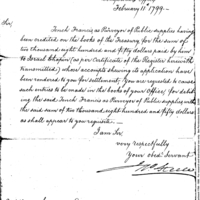 February 11th 1799.
Sir,
Tench Francis as Purveyor of Public supplies having
been credited on the books of the Treasury, for the sum of
two thousand eight hundred and fifty dollars paid by him
to Israel Chapin (as per Certificate of the Register herewith
transmitted,) whose accounts shewing its application have
been rendered to you for settlement; You are requested to cause
such entries to be made in the books of your Office, for debiting
the said Tench Francis as Purveyor of Public supplies with the
said sum of two thousand eight hundred and fifty dollars
as shall appear to you requisite.
I am Sir
very respectfully
Your obed. Servant